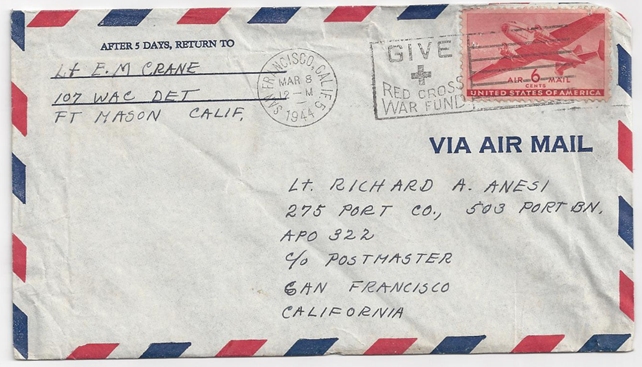 AFTER 5 DAYS, RETURN TO
Lt E. M CRANE
107 WAC DET
FT MASON CALIF.
SAN FRANCISCO, CALIF. 5
MAR 8
12 - M
1944
GIVE
RED CROSS
WAR FUND
AIR 6 MAIL
CENTS
UNITED STATES OF AMERICA
VIA AIR MAIL
Lt. RICHARD A. ANESI
275 PORT CO., 503 PORT BN,
APO 322
C/o POSTMASTER
SAN FRANCISCO
CALIFORNIA